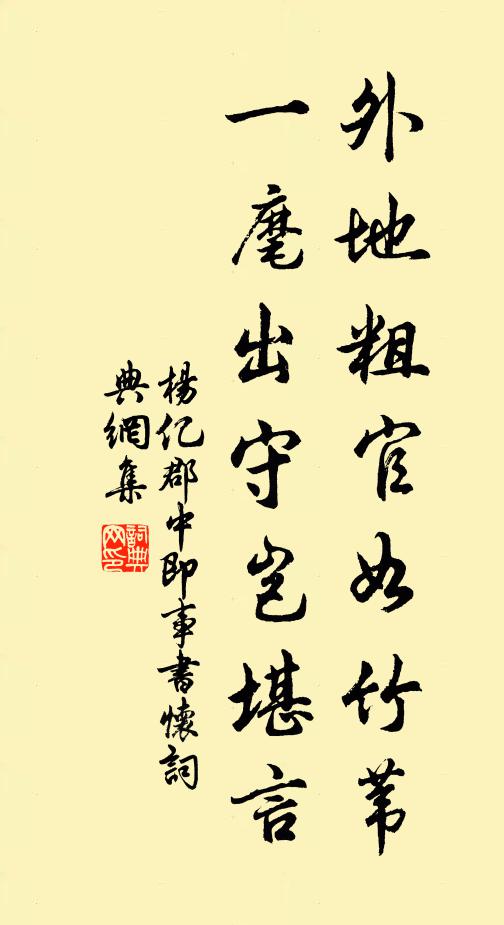 外地粗官如竹苇
一麾出守岂堪言
杨亿郡中即事書懷詞
典網集
詞典网印